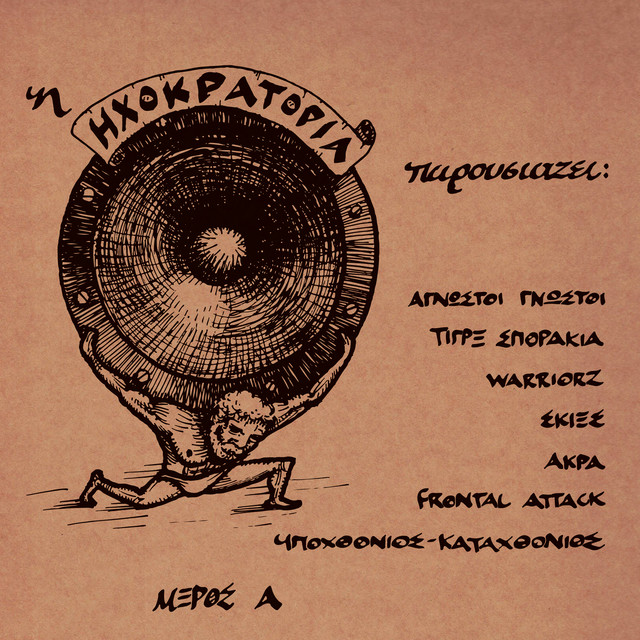 η
ΗΧΟΚΡΑΤΟΡΙΑ
παρουσιαζει:
ΑΓΝΩΣΤΟΙ ΓΝΩΣΤΟΙ
ΤΙΓΡΞ ΣΠΟΡΑΚΙΑ
WARRIORZ
ΣΚΙΞΣ
ΑΚΡΑ
FRONTAL ATTACK
ΥΠΟΧΘΟΝΙΟΣ-ΚΑΤΑΧΘΟΝΙΟΣ
ΜΞΡΟΣ Α